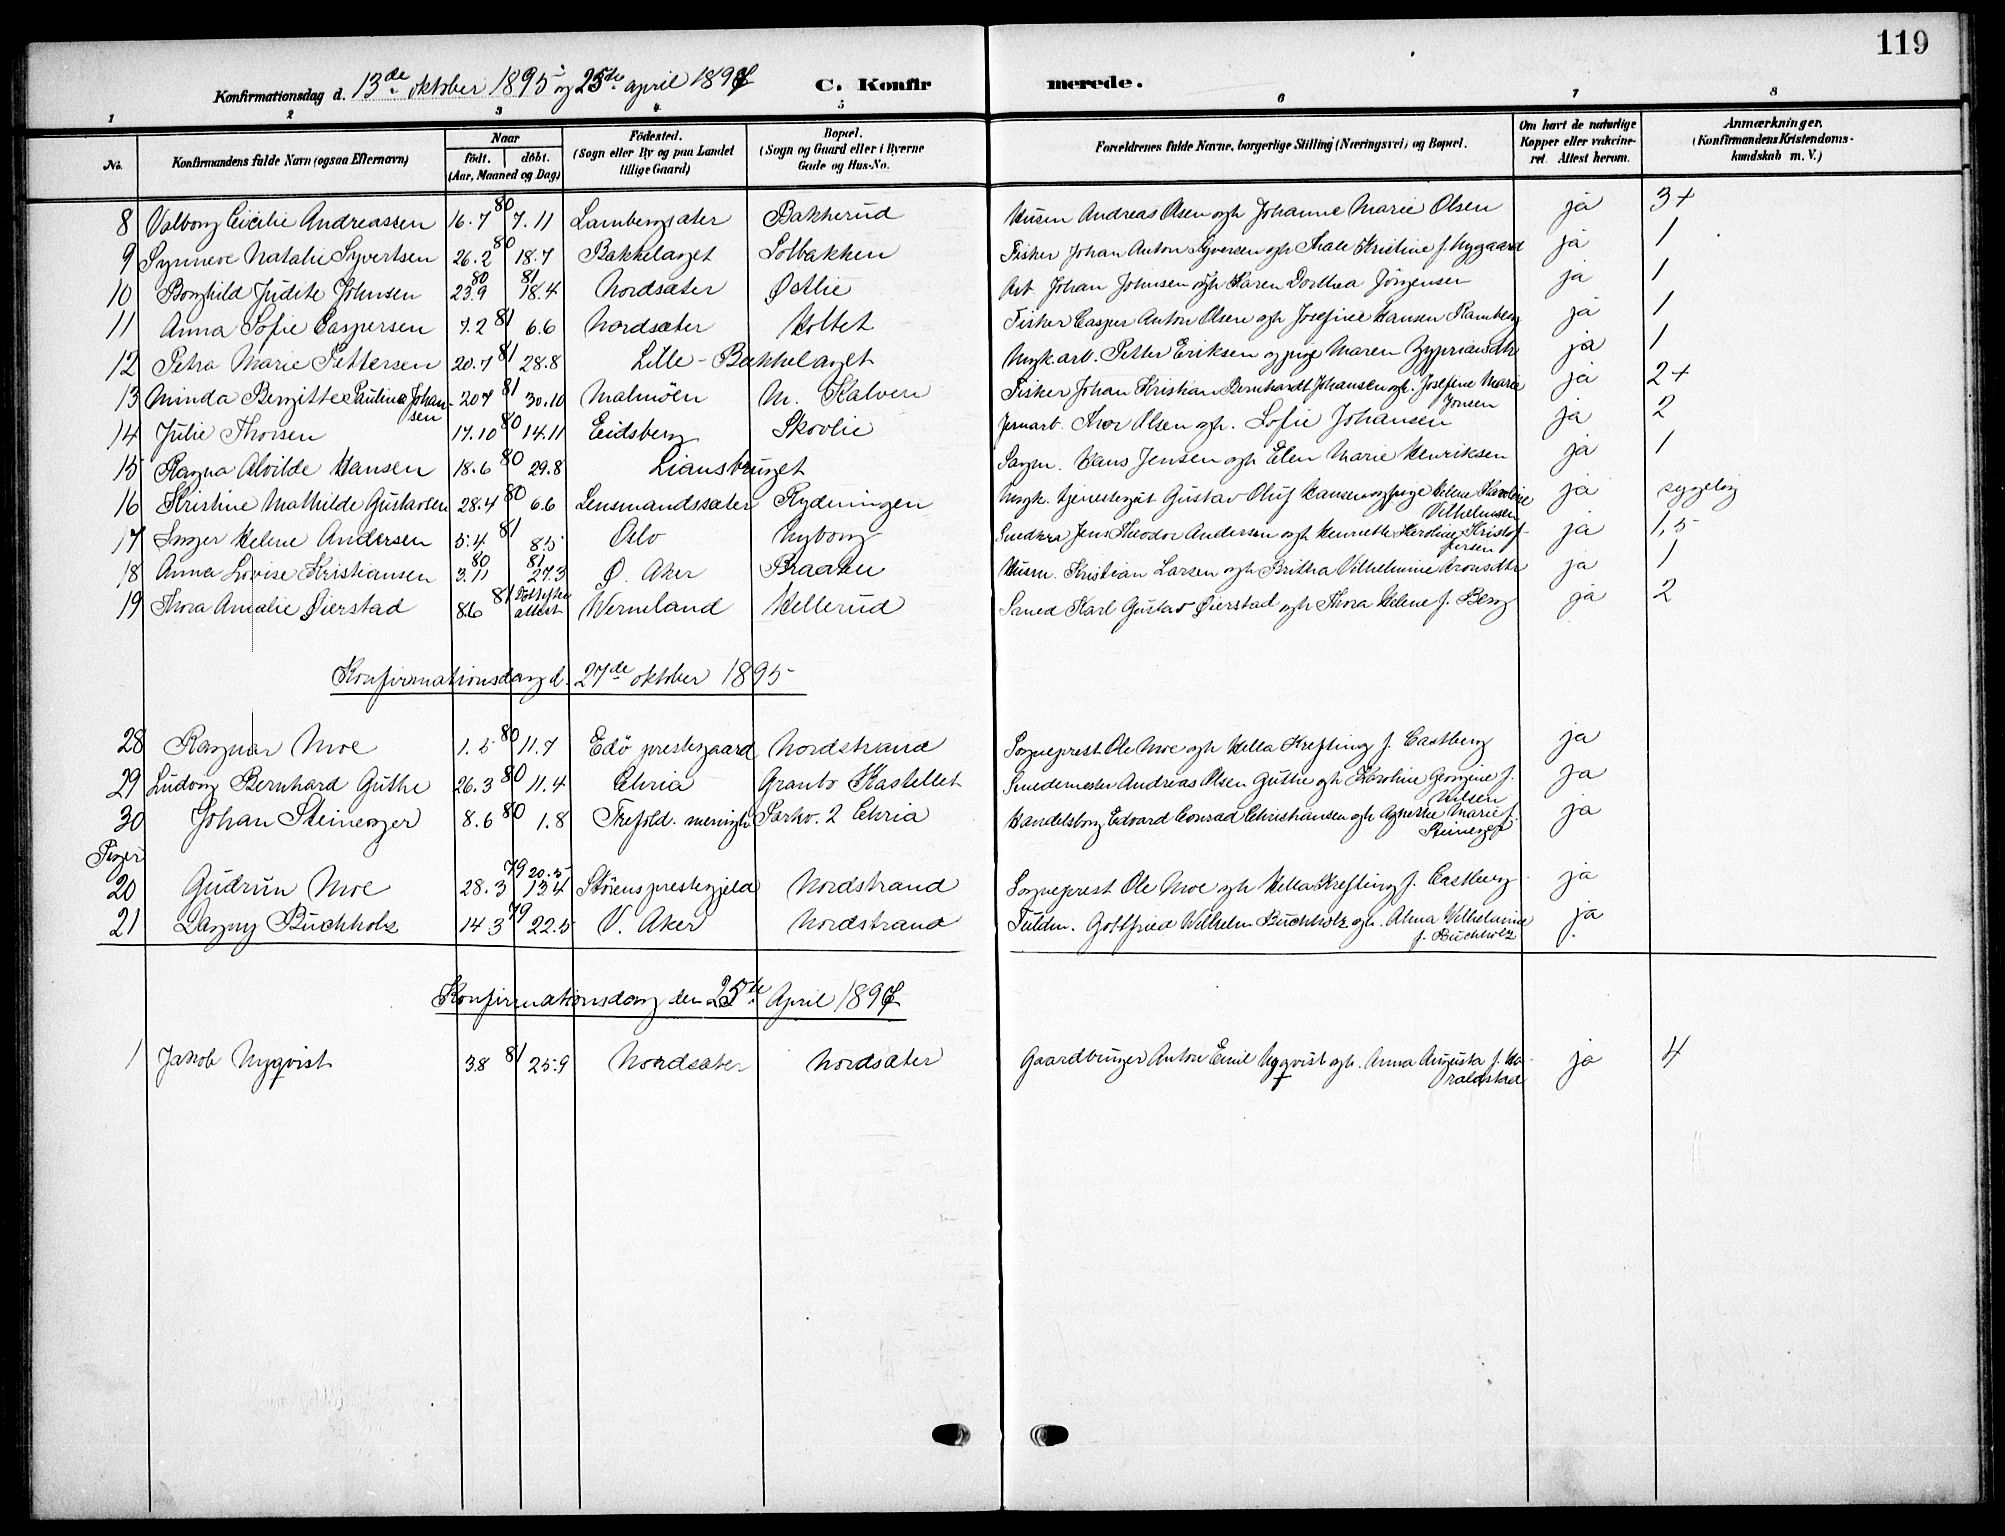 119
Konfirmationsdag d. 13de oktober 1895 og 25de april 1897 C. Konfirmerede.
1 2 3 4 5 6 7 8
No. Konfirmandens fulde Navn (ogsaa Efternavn) Naar födt. döbt. (Aar, Maaned og Dag) Födested. (Sogn eller By og paa Landet tillige Gaard) Bopæl. (Sogn og Gaard eller i Byerne Gade og Hus-No. Forældrenes fulde Navne, borgerlige Stilling (Næringsvei) og Bopæl. Om havt de naturlige Kopper eller vakcineret. Attest herom. Anmærkninger. (Konfirmandens Kristendomskundskab m. V.)
8 Valborg Cicilie Andreassen 16.7 80 7.11 Lambergsæter Bakkerud Husm Andreas Olsen ogh Johanne Marie Olsen ja 3+
9 Synneve Natalie Syvertsen 26.2 80 18.7 Bakkelaget Solbakken Fisker Johan Anton Syversen ogh Thale Kristine f. Nygaard ja 1
10 Borghild Judite Johnsen 23.9 80 18.4 81 Nordsæter Østlie Arb Johan Johnsen ogh Karen Dorthea Jörgensen ja 1
11 Anna Sofie Caspersen 7.2 81 6.6 Nordsæter Holtet Fisker Casper Anton Olsen ogh Josefine Hansen Ramberg ja 1
12 Petra Marie Pettersen 20.7 81 28.8 Lille-Bakkelaget Ungk.arb. Petter Eriksen og pige Maren Zypriansdtr ja 1
13 Minda Bergitte Paulina Johansen 20.7 81 30.10 Malmöen N. Kalven Fisker Johan Kristian Bernhardt Johansen ogh. Josefine Marie Jonsen ja 2+
14 Julie Thorsen 17.10 80 14.11 Eidsberg Skovlie Jernarb. Thor Olsen ogh. Sofie Johansen ja 2
15 Ragna Alvilde Hansen 18.6 80 29.8 Liansbruget Sagm. Hans Jensen ogh Elen Marie Henriksen ja 1
16 Kristine Mathilde Gustavsen 28.4 80 6.6 Lensmandssæter Rydningen Ungk. tjenestegut Gustav Oluf Hansen og pige Helene Karoline Vilhelmsen ja sygelig
17 Inger Helene Andersen 5.4 81 8.5 Oslo Nyborg Snedker Jens Theodor Andersen ogh Henriette Karoline Kristoffersen ja 1,5
18 Anna Lovise Kristiansen 3.11 80 27.3 81 Ø. Aker Braaten Husm. Kristian Larsen ogh Britha Vilhelmine Aronsdtr ja 1
19 Thora Amalie Øierstad 8.6 81 attest Verneland Hellerud Karl Gustav Øierstad ogh Thora Helene f. Berg ja 2
Konfirmationsdag d. 27de oktober 1895
28 Ragnar Moe 1.5 80 11.7 Edö prestegaard Nordstrand Sogneprest Ole Moe ogh Hella Krefting f. Castberg ja
29 Ludvig Bernhard Guthe 26.3 80 11.4 Chria Kastellet Smedemester Andreas Olsen Guthe ogh Karoline Georgine f. Nilsen ja
30 Johan Steineger 8.6 80 1.8 Trefold. menigh Parkv. 2 Chria Handelsborg Edvard Conrad Christiansen ogh Agnethe Marie f. Steineger ja
Piger
20 Gudrun Moe 28.3 79 20.5 13.4 Störens prestegjeld Nordstrand Sogneprest Ole Moe ogh Hella Krefting f. Castberg ja
21 Dagny Buchholz 14.3 79 22.5 V. Aker Nordstrand Fuldm. Gottfried Wilhelm Buchholz ogh. Alma Vilhelmine f. Buchholz ja
Konfirmationsdag den 25de April 1897
1 Jakob Nyqvist 3.8 81 25.9 Nordsæter Nordsæter Gaardbruger Anton Emil Nyqvist ogh. Anna Augusta f. Haraldstad ja 4